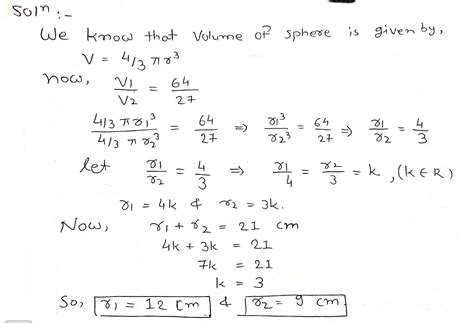 Solⁿ :-
We know that Volume of sphere is given by,
V = 4/3 πr³
now, V₁/V₂ = 64/27
4/3 πr₁³ / 4/3 πr₂³ = 64/27 ⇒ r₁³/r₂³ = 64/27 ⇒ r₁/r₂ = 4/3
let r₁/r₂ = 4/3 ⇒ r₁/4 = r₂/3 = k , (k ∈ R)
r₁ = 4k & r₂ = 3k.
Now, r₁ + r₂ = 21 cm
4k + 3k = 21
7k = 21
k = 3
So, r₁ = 12 cm & r₂ = 9 cm